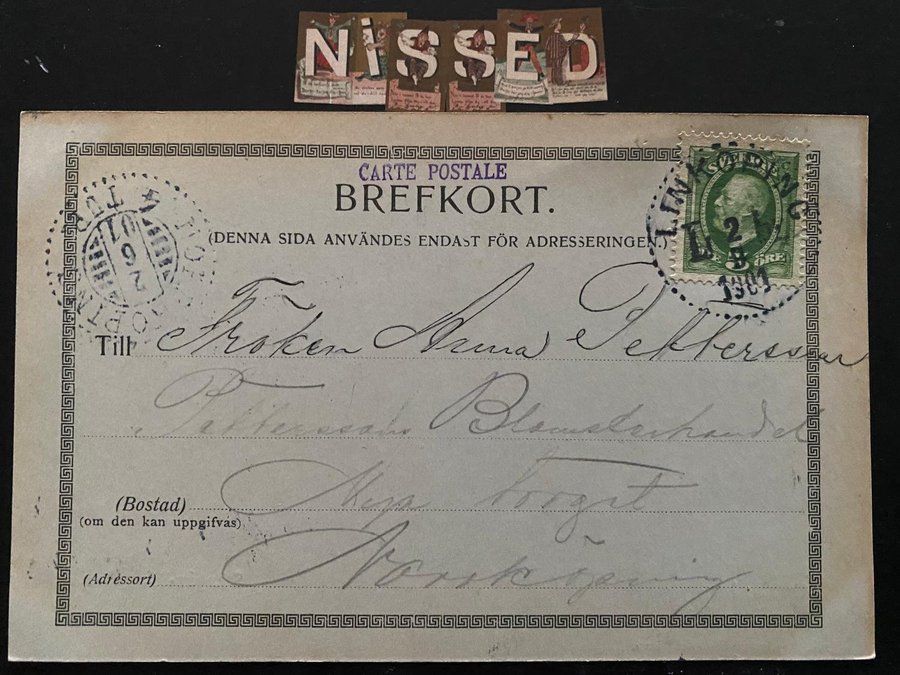 NiSSED
CARTE POSTALE
BREFKORT.
(DENNA SIDA ANVÄNDES ENDAST FÖR ADRESSERINGEN.)
LINKÖPING
L 2 1
B
1901
2
6
01
TUR
Till Fröken Anna Pettersson
Petterssons Blomsterhandel
Nya Torget
(Bostad)
(om den kan uppgifvas)
Norrköping
(Adressort)